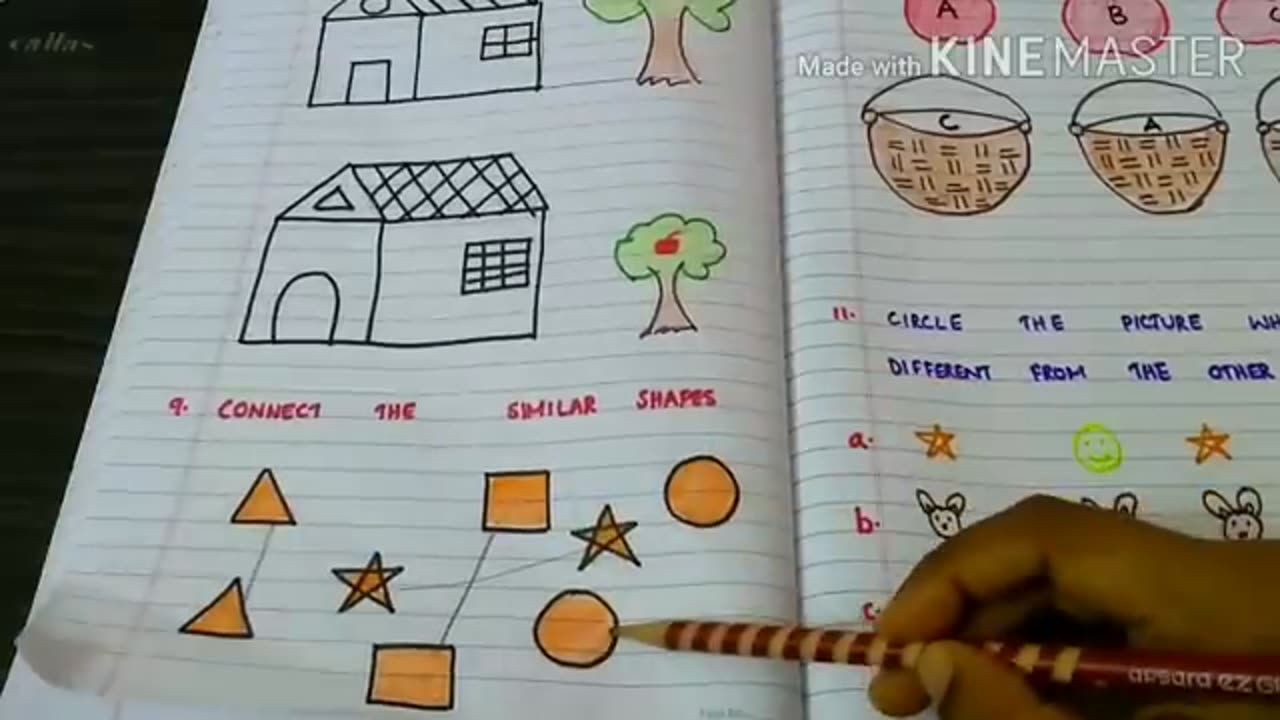 A B
Made with KINEMASTER
C A
9. CONNECT THE SIMILAR SHAPES
11. CIRCLE THE PICTURE
DIFFERENT FROM THE OTHER
a.
b.
c.
apsara EZ